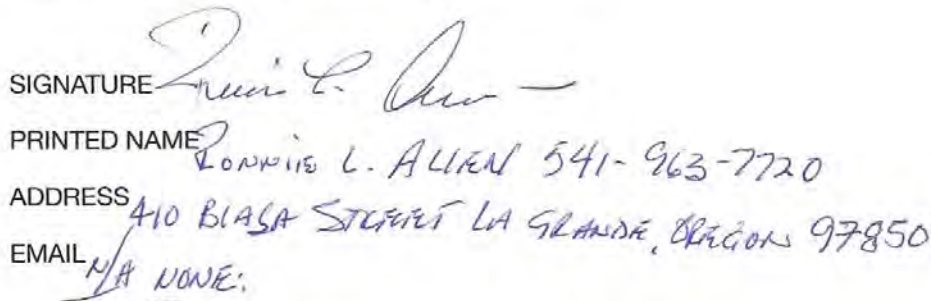 SIGNATURE
PRINTED NAME RONNIE L. ALLEN 541-963-7720
ADDRESS 410 STREET LA GRANDE, OREGON 97850
EMAIL N/A NONE: